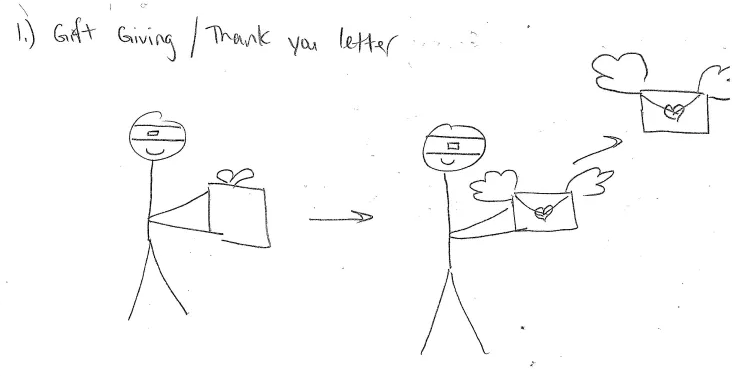 1.) Gift Giving / Thank you letter